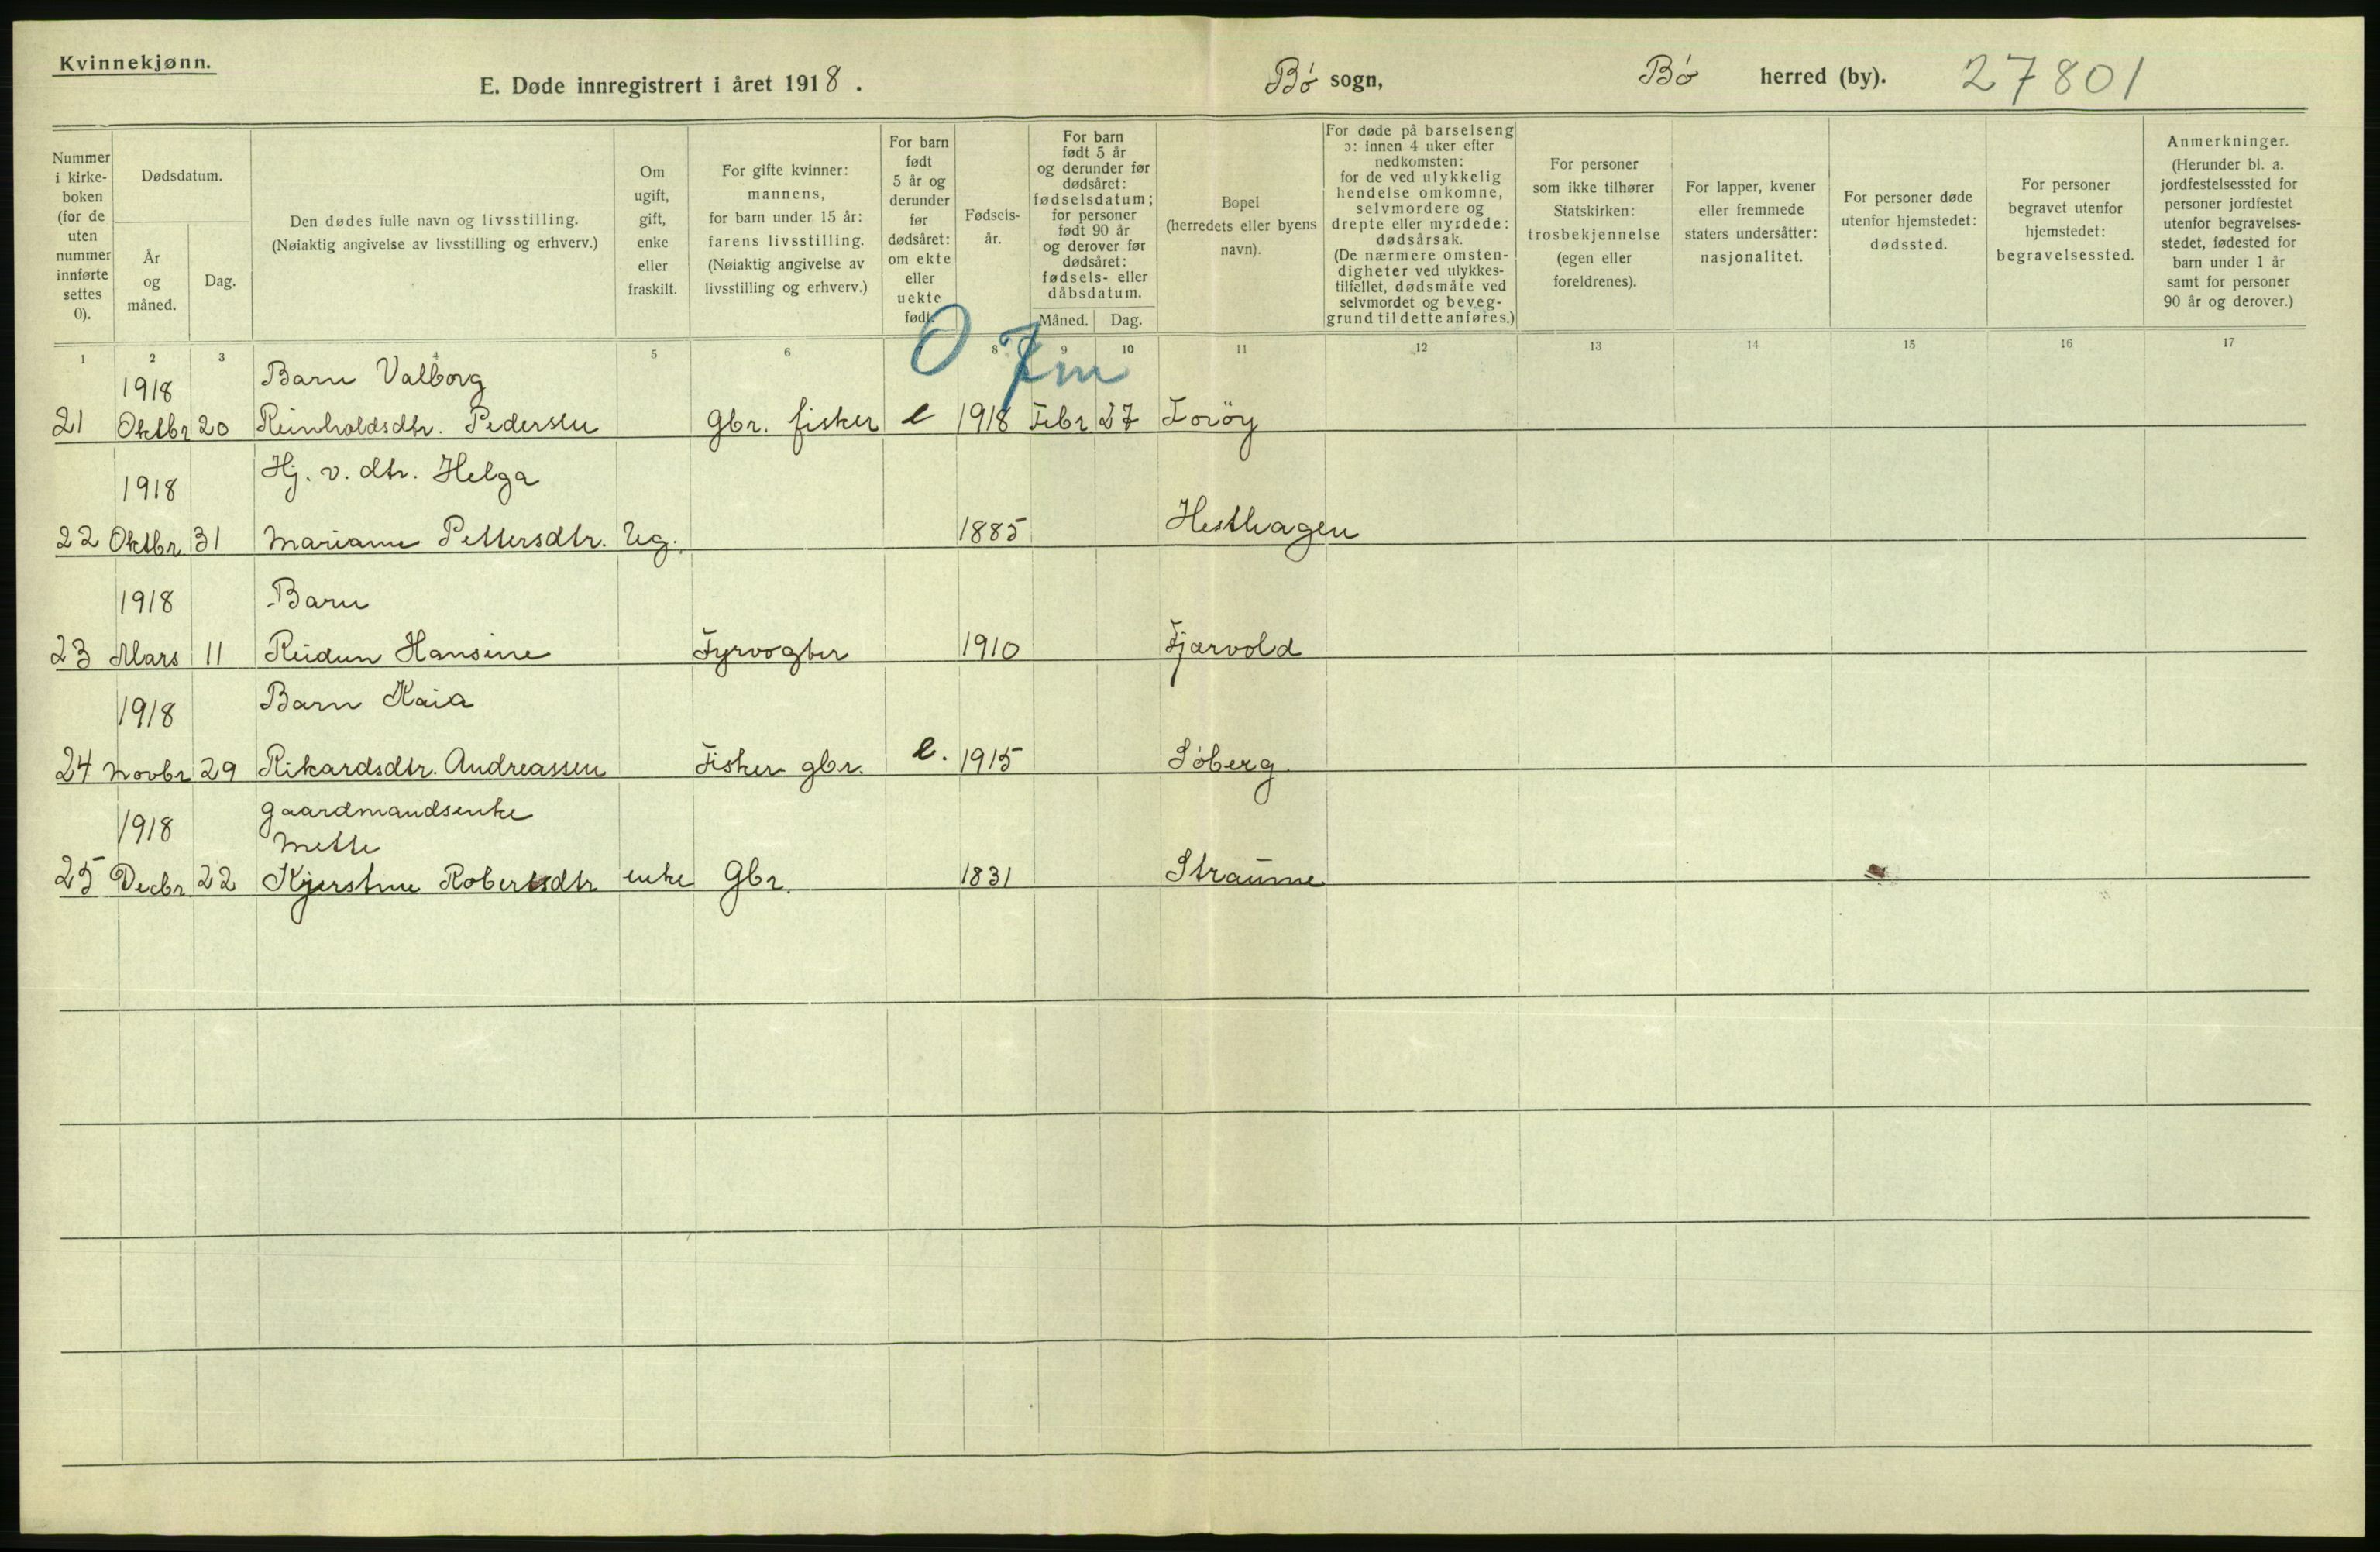 Kvinnekjønn.
E. Døde innregistrert i året 1918.
Bø sogn,
Bø herred (by).
27801
Nummer i kirke-boken (for de uten nummer innførte settes 0).
Dødsdatum.
År og måned.
Dag.
Den dødes fulle navn og livsstilling.
(Nøiaktig angivelse av livsstilling og erhverv.)
Om ugift, gift, enke eller fraskilt.
For gifte kvinner: mannens, for barn under 15 år: farens livsstilling. (Nøiaktig angivelse av livsstilling og erhverv.)
For barn født 5 år og derunder før dødsåret: om ekte eller uekte født.
Fødsels-år.
For barn født 5 år og derunder før dødsåret: fødselsdatum; for personer født 90 år og derover før dødsåret: fødsels- eller dåbsdatum.
Måned.
Dag.
Bopel (herredets eller byens navn).
For døde på barselseng ɔ: innen 4 uker efter nedkomsten: for de ved ulykkelig hendelse omkomne, selvmordere og drepte eller myrdede: dødsårsak. (De nærmere omsten-digheter ved ulykkes-tilfellet, dødsmåte ved selvmordet og beveg-grund til dette anføres.)
For personer som ikke tilhører Statskirken: trosbekjennelse (egen eller foreldrenes).
For lapper, kvener eller fremmede staters undersåtter: nasjonalitet.
For personer døde utenfor hjemstedet: dødssted.
For personer begravet utenfor hjemstedet: begravelsessted.
Anmerkninger. (Herunder bl. a. jordfestelsessted for personer jordfestet utenfor begravelses-stedet, fødested for barn under 1 år samt for personer 90 år og derover.)
1 2 3 4 5 6 8 9 10 11 12 13 14 15 16 17
0 7m
1918 Barn Valborg
21 Oktbr 20 Reinholdsdtr. Pedersen Gbr. fisker e 1918 Febr 27 Forøy
1918 Hj. v. dtr. Helga
22 Oktbr 31 Marianne Pettersdtr. Ug. 1885 Hesthagen
1918 Barn
23 Mars 11 Reidun Hansine Fyrvogter 1910 Fjærvold
1918 Barn Kaia
24 Novbr 29 Rikardsdtr. Andreassen Fisker gbr. e. 1915 Søberg
1918 Gaardmandsenke
Mette
25 Decbr 22 Kjerstine Robertsdtr enke Gbr. 1831 Straume